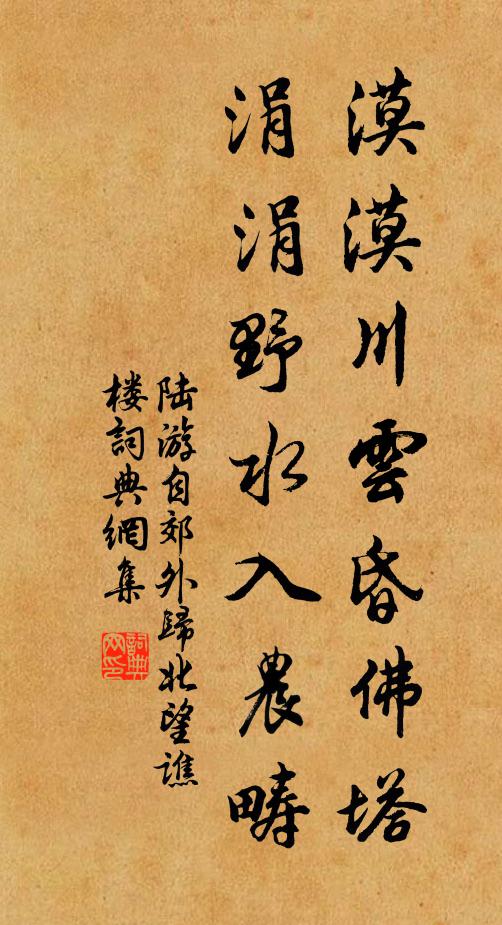 漠漠川雲昏佛塔
涓涓野水入農疇
陆游自郊外歸北望譙
楼詞典網集
詞典网印